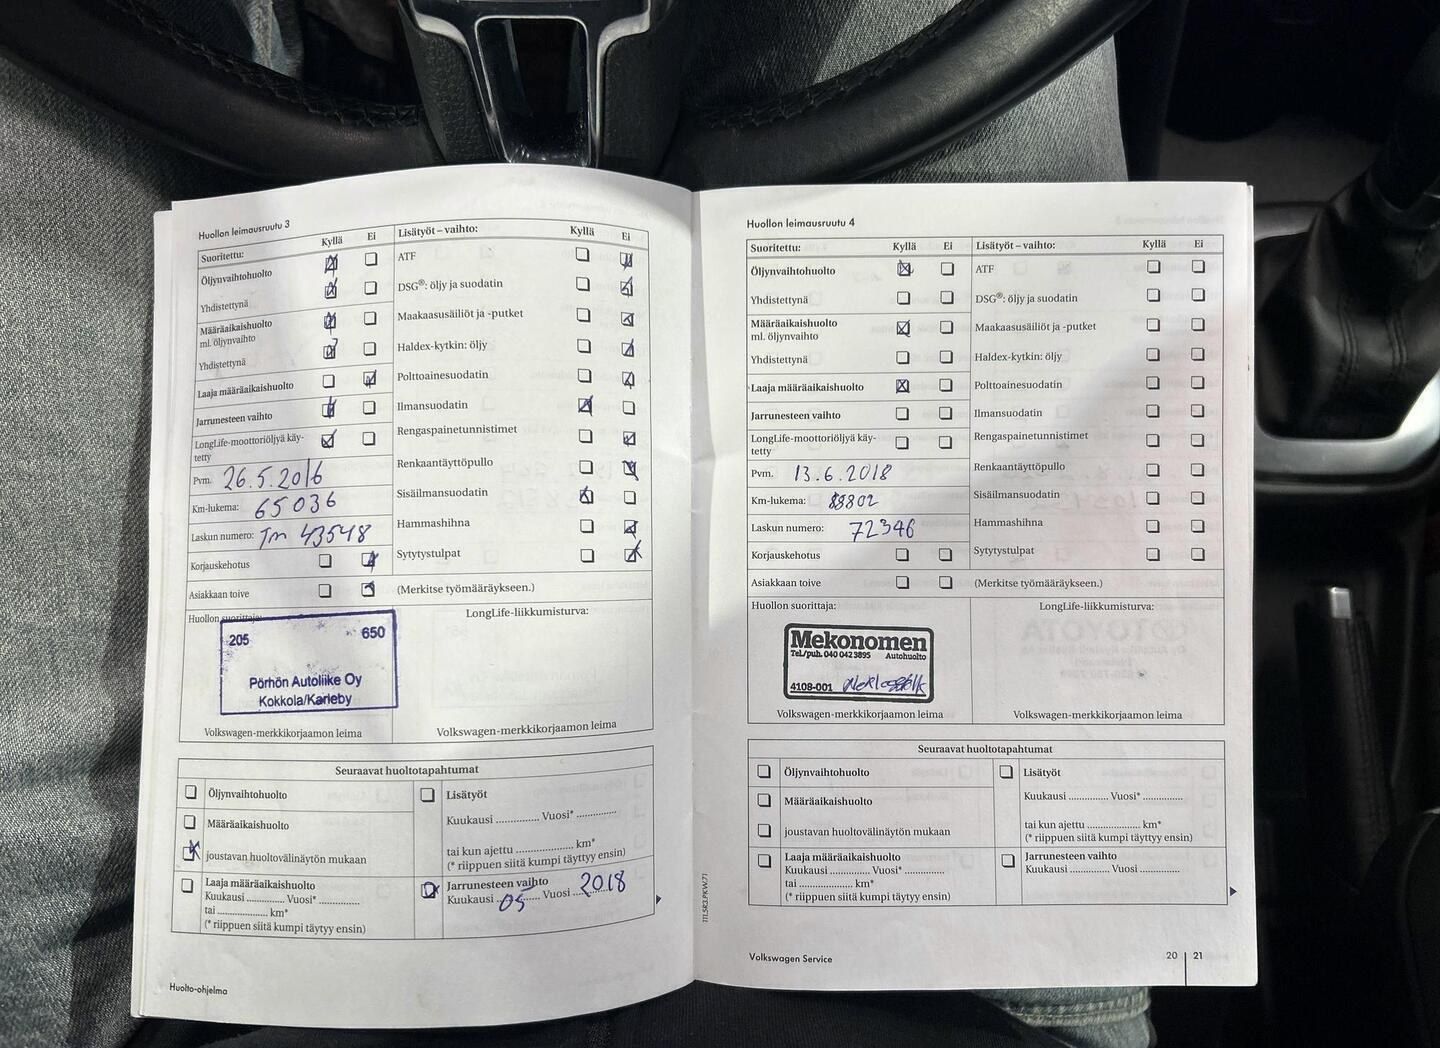 Huollon leimausruutu 3
Suoritettu: Kyllä Ei
Öljynvaihtohuolto
Yhdistettynä
Määräaikaishuolto
ml. öljynvaihto
Yhdistettynä
Laaja määräaikaishuolto
Jarrunesteen vaihto
LongLife-moottoriöljyä käy-
tetty
Pvm. 26.5.2016
Km-lukema: 65036
Laskun numero: Tm 43548
Korjauskehotus
Asiakkaan toive
Lisätyöt – vaihto: Kyllä Ei
ATF
DSG®: öljy ja suodatin
Maakaasusäiliöt ja -putket
Haldex-kytkin: öljy
Polttoainesuodatin
Ilmansuodatin
Rengaspainetunnistimet
Renkaantäyttöpullo
Sisäilmansuodatin
Hammashihna
Sytytystulpat
(Merkitse työmääräykseen.)
Huollon suorittaja:
205 650
Pörhön Autoliike Oy
Kokkola/Karleby
Volkswagen-merkkikorjaamon leima
LongLife-liikkumisturva:
Volkswagen-merkkikorjaamon leima
Seuraavat huoltotapahtumat
Öljynvaihtohuolto
Määräaikaishuolto
joustavan huoltovälinäytön mukaan
Laaja määräaikaishuolto
Kuukausi ............ Vuosi* ............
tai ............ km*
(* riippuen siitä kumpi täytyy ensin)
Lisätyöt
Kuukausi ............ Vuosi* ............
tai kun ajettu ............ km*
(* riippuen siitä kumpi täytyy ensin)
Jarrunesteen vaihto
Kuukausi 05 Vuosi 2018
Huolto-ohjelma
Huollon leimausruutu 4
Suoritettu: Kyllä Ei
Öljynvaihtohuolto
Yhdistettynä
Määräaikaishuolto
ml. öljynvaihto
Yhdistettynä
Laaja määräaikaishuolto
Jarrunesteen vaihto
LongLife-moottoriöljyä käy-
tetty
Pvm. 13.6.2018
Km-lukema: 88802
Laskun numero: 72346
Korjauskehotus
Asiakkaan toive
Lisätyöt – vaihto: Kyllä Ei
ATF
DSG®: öljy ja suodatin
Maakaasusäiliöt ja -putket
Haldex-kytkin: öljy
Polttoainesuodatin
Ilmansuodatin
Rengaspainetunnistimet
Renkaantäyttöpullo
Sisäilmansuodatin
Hammashihna
Sytytystulpat
(Merkitse työmääräykseen.)
Huollon suorittaja:
Mekonomen
Tel./puh. 040 042 3895 Autohuolto
4108-001
Volkswagen-merkkikorjaamon leima
LongLife-liikkumisturva:
Volkswagen-merkkikorjaamon leima
Seuraavat huoltotapahtumat
Öljynvaihtohuolto
Määräaikaishuolto
joustavan huoltovälinäytön mukaan
Laaja määräaikaishuolto
Kuukausi ............ Vuosi* ............
tai ............ km*
(* riippuen siitä kumpi täytyy ensin)
Lisätyöt
Kuukausi ............ Vuosi* ............
tai kun ajettu ............ km*
(* riippuen siitä kumpi täytyy ensin)
Jarrunesteen vaihto
Kuukausi ............ Vuosi ............
111.5R3.PKW.71
Volkswagen Service
20 21